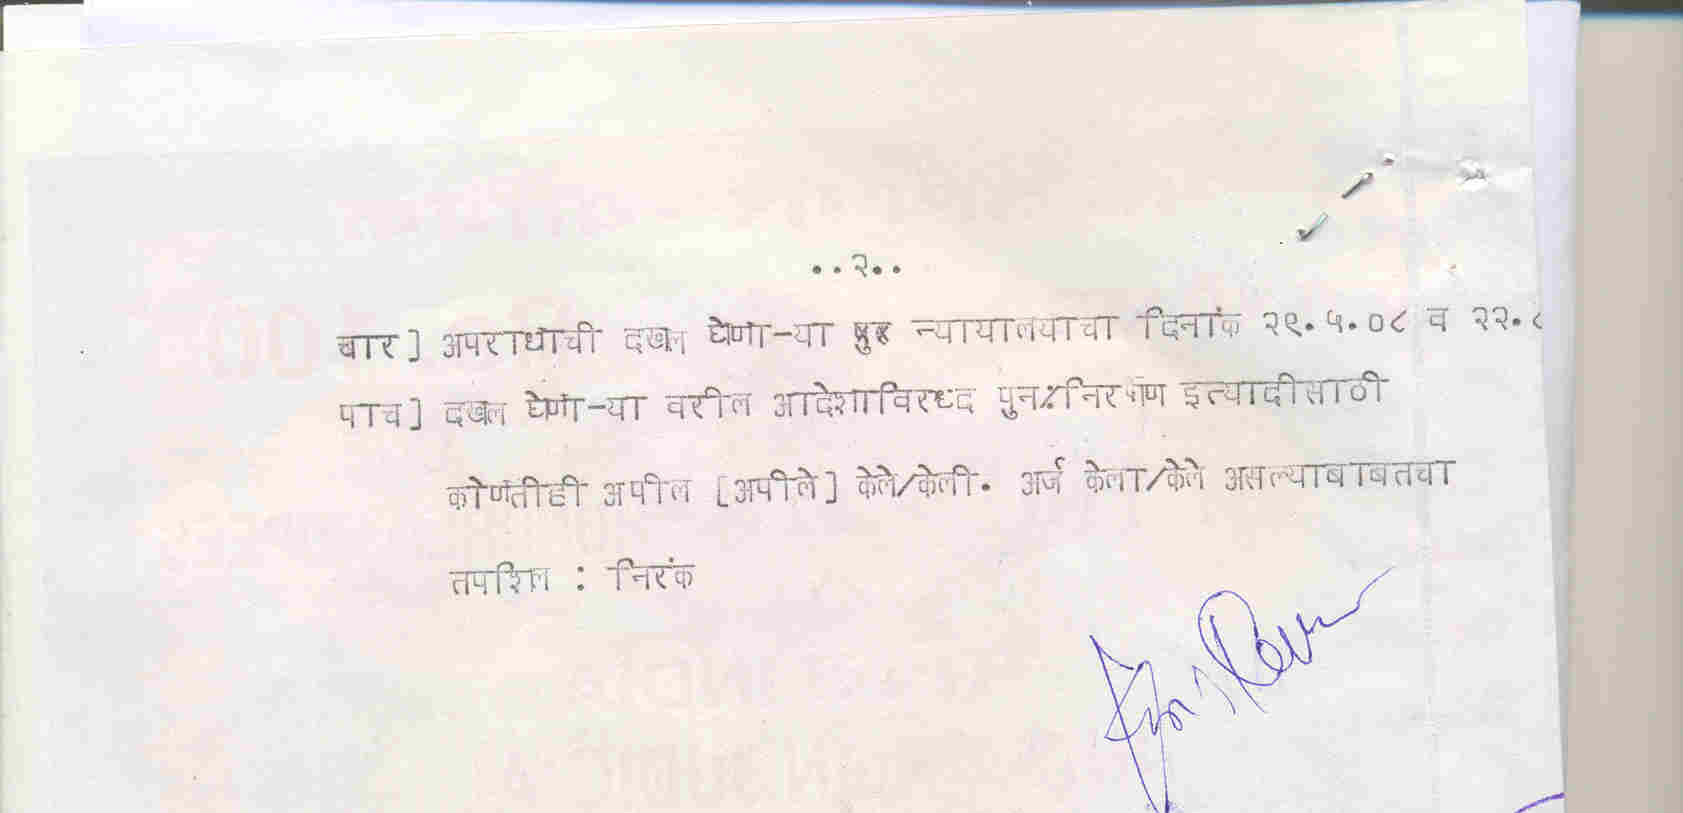 ..२..
चार] अपराधाची दखल घेणा-या न्यायालयाचा दिनांक २९.५.०८ व २२.८
पाच] दखल घेणा-या वरील आदेशाविरध्द पुनःनिरक्षण इत्यादीसाठी
कोणतीही अपील [अपीले] केले/केली. अर्ज केला/केले असल्याबाबतचा
तपशिल : निरंक